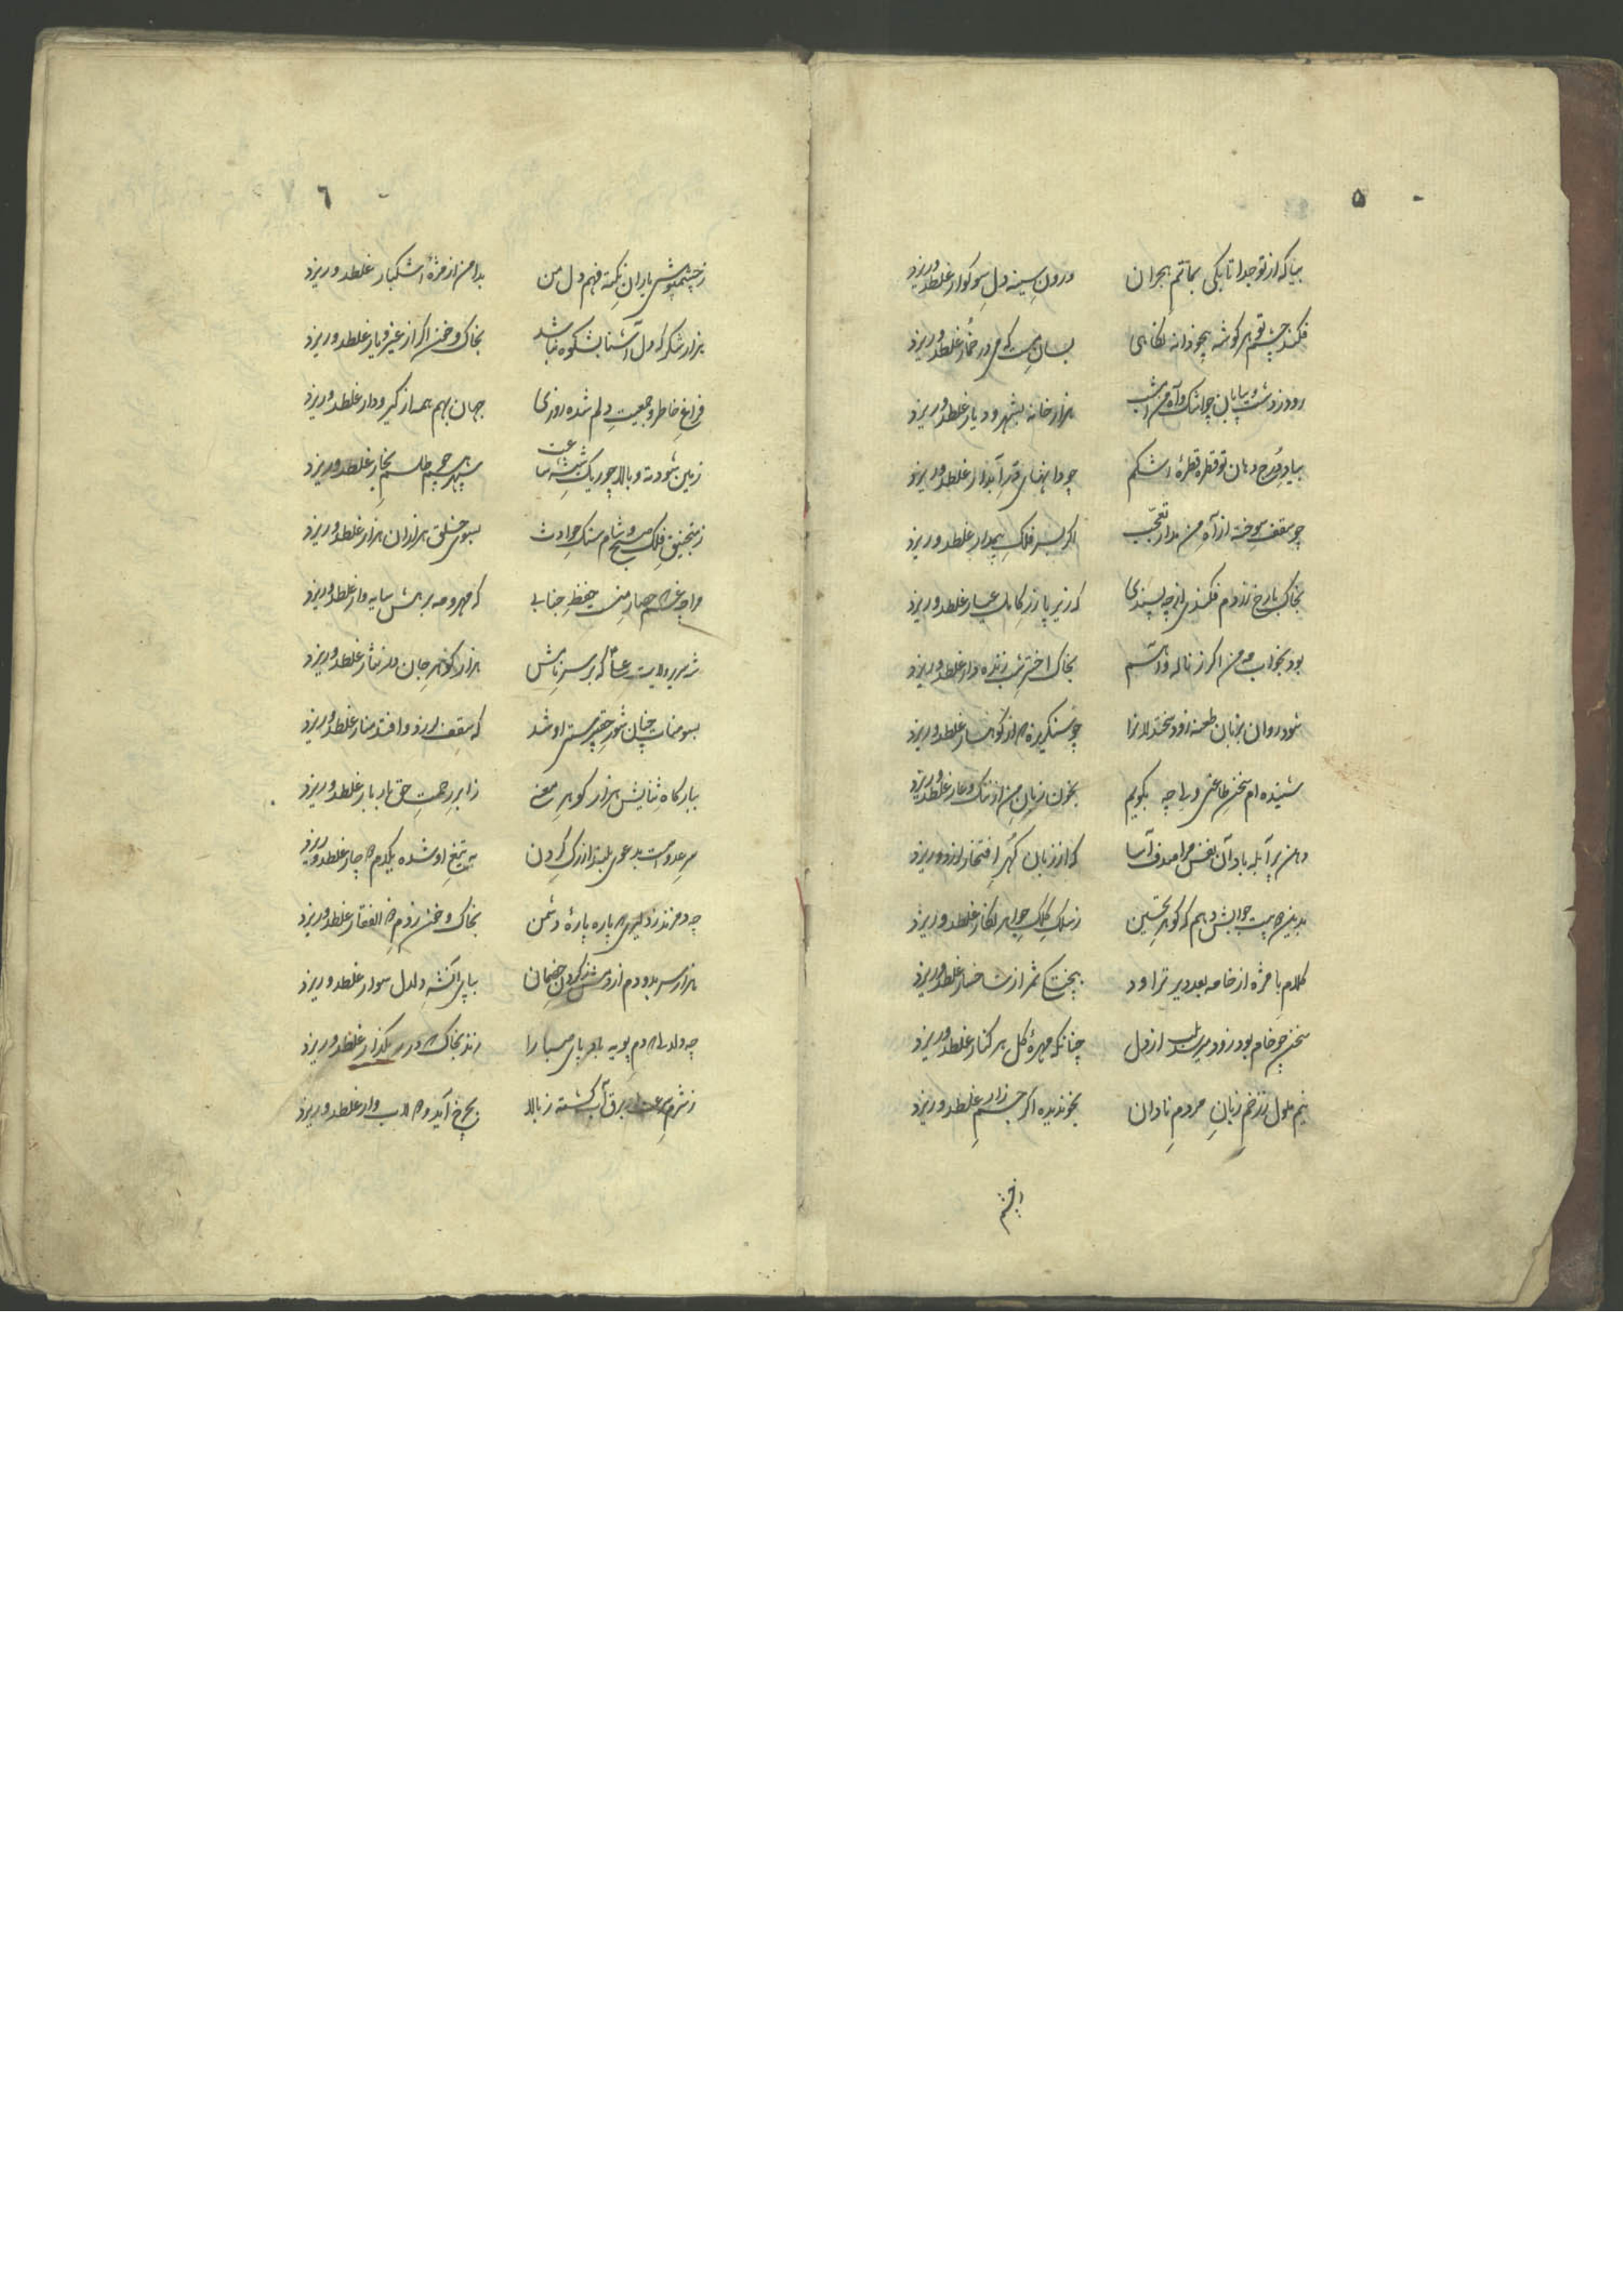 ۵
بیا که از تو جدا تا بکی بماتم هجران درون سینه دل سوکوار غلطد و ریزد
فکند چشم تو هر کوشه بیخودانه نکاهی بسان مست که در خمار غلطد و ریزد
رود ز دشت و بیابان چو اشک و آه من امشب هزار خانه بشهر و دیار غلطد و ریزد
بیاد دُرج دهان تو قطره قطرهٔ اشکم چو دانهای دُرِ آبدار غلطد و ریزد
چو سقف سوخته از آه من مدار تعجّب اکر بسر فلک بیمدار غلطد و ریزد
بخاک با رخ زردم فکندی که زیر پا زر کامل عیار غلطد و ریزد
بود بخواب مه من اکر ز ناله بخاک اختر شب زنده دار غلطد و ریزد
شود روان بزبان طعنه زود چو سنکریزه که از کوهسار غلطد و ریزد
شنیده ام سخن طاعن و برا چه بکویم بخون زبان من از ننک و عار غلطد و ریزد
دهن پر آبله باد آن نفس مرا صدف آسا که از زبان کهر افتخار لرزد و ریزد
بدین دو بیت جوابش دهم که کوهر تحسین ز سلک کلک جواهر نکار غلطد و ریزد
کلام با مزه از خامه بعد دیر تراود به پختکی ثمر از شاخسار غلطد و ریزد
سخن چو خام بود زود میرسد بلب از دل چنانکه مهرهٔ کل بر کنار غلطد و ریزد
نیم ملول ز زخم زبانِ مردمِ نادان بخون دیده اکر جسم زار غلطد و ریزد
ازچشم
٦
ز چشمپوشی یاران نکته فهم دل من بدامن از مژهٔ اشکبار غلطد و ریزد
هزار شکر که دل آشنا بشکوه نباشد بخاک و خون اکر از غیر و یار غلطد و ریزد
فراغ خاطر و جمعیت دلم شده روزی جهان بهم همه از کیر و دار غلطد و ریزد
زمین شود ته و بالا چو ریک شیشهٔ ساعت سپهر طلسم بخار غلطد و ریزد
ز منجنیق فلک صبح و شام سنک حوادث بسوی خلق هزاران هزار غلطد و ریزد
مرا چه غم که حصار من حفظ جنابی که مهر و مه بر سایه وار غلطد و ریزد
شه سریر ولایت که بر سر نامش هزار کوهر جان در نثار غلطد و ریزد
بسومنات چنان شور حق پرستی او شد که سقف لرزد و افتد منار غلطد و ریزد
ببارکاه ثنایش هزار کوهر معنی ز ابر رحمت حق بار بار غلطد و ریزد
سر عدوست بدعوی بلند از رک کردن به تیغ او شده یکدم دو چار غلطد و ریزد
چه دم زند ز دلیری که پاره پارهٔ دشمن بخاک و خون ز دم ذو الفقار غلطد و ریزد
هزار سر بدو دم از کردن خصمان بپای دلدل سوار غلطد و ریزد
چه دم پویه صبا را بخاک در رهکذار غلطد و ریزد
ز شرم سرعت او برق آب کشته ز بالا بچرخ آید و دولاب وار غلطد و ریزد